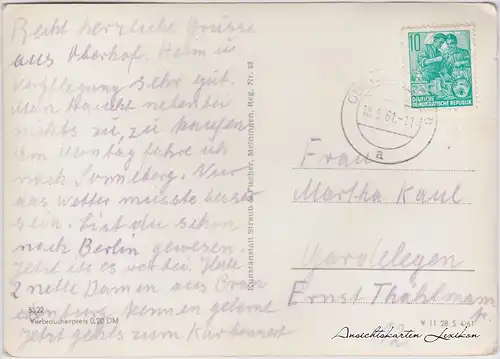 Recht herzliche Grüsse
aus Oberhof. Heim u
Verpflegung sehr gut.
Man braucht nebenbei
nichts zu, zu kaufen
am Montag fahre ich
nach Sonneberg. Nur
das Wetter müsste besser
sein. Bist du schon
nach Berlin gewesen.
Jetzt ist es werder. Habe
2 nette Damen aus
kennen gelernt
Jetzt gehts zum Kartenrest
5522
Verbraucherpreis 0,20 DM
Kunstanstalt Straub & Fischer, Meiningen, Reg. Nr. 22
10
DEUTSCHE
DEMOKRATISCHE REPUBLIK
18.5.61-11
a
Frau
Martha Kaul
Gardelegen
Ernst Thählmann
V 11 28 S 4161
Ansichtskarten Lexikon